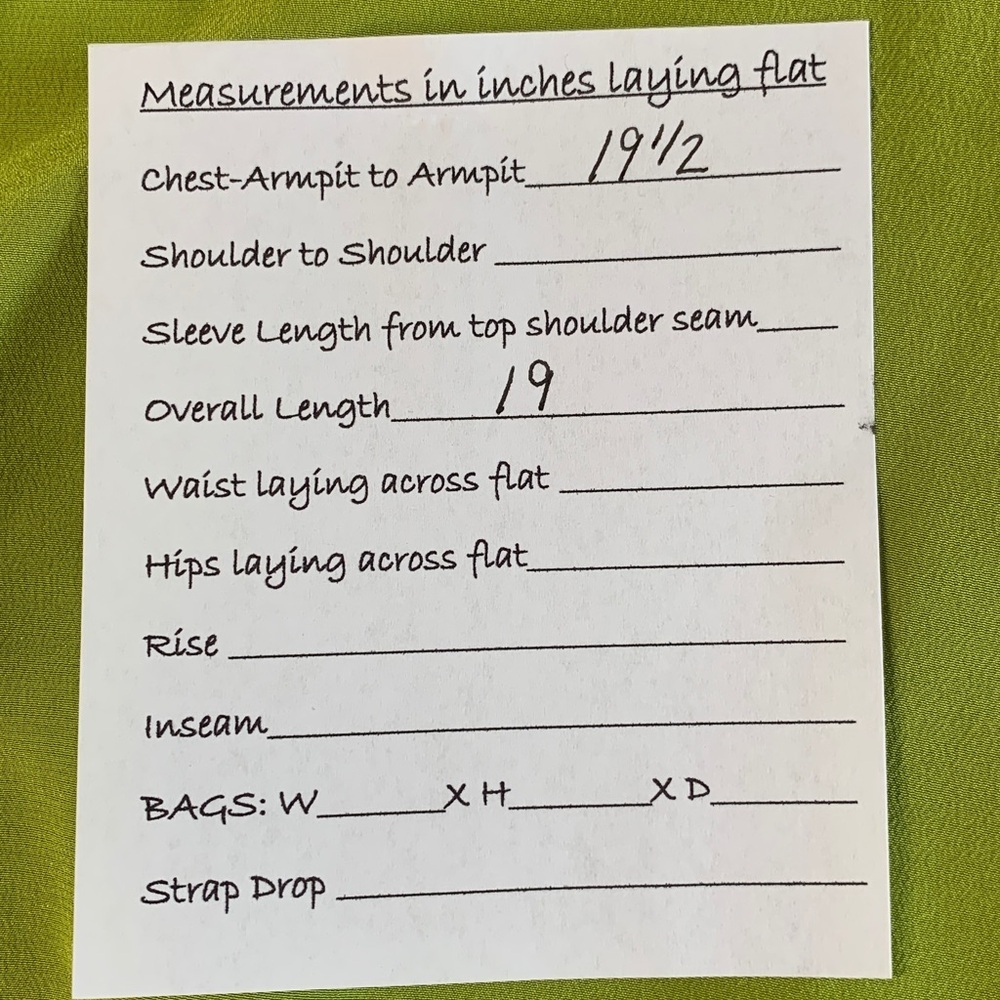 Measurements in inches laying flat
Chest-Armpit to Armpit 19 1/2
Shoulder to Shoulder
Sleeve Length from top shoulder seam
Overall Length 19
Waist laying across flat
Hips laying across flat
Rise
Inseam
BAGS: W______X H______X D______
Strap Drop